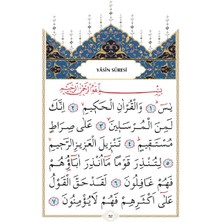 YÂSÎN SÛRESİ
بِسْمِ اللهِ الرَّحْمٰنِ الرَّحِيمِ
يٰسٓ ﴿١﴾ وَالْقُرْاٰنِ الْحَكِيمِ ﴿٢﴾ اِنَّكَ
لَمِنَ الْمُرْسَلِينَ ﴿٣﴾ عَلٰى صِرَاطٍ
مُسْتَقِيمٍ ﴿٤﴾ تَنْزِيلَ الْعَزِيزِ الرَّحِيمِ ﴿٥﴾
لِتُنْذِرَ قَوْمًا مَٓا اُنْذِرَ اٰبَٓاؤُهُمْ
فَهُمْ غَافِلُونَ ﴿٦﴾ لَقَدْ حَقَّ الْقَوْلُ
عَلٰٓى اَكْثَرِهِمْ فَهُمْ لَا يُؤْمِنُونَ ﴿٧﴾